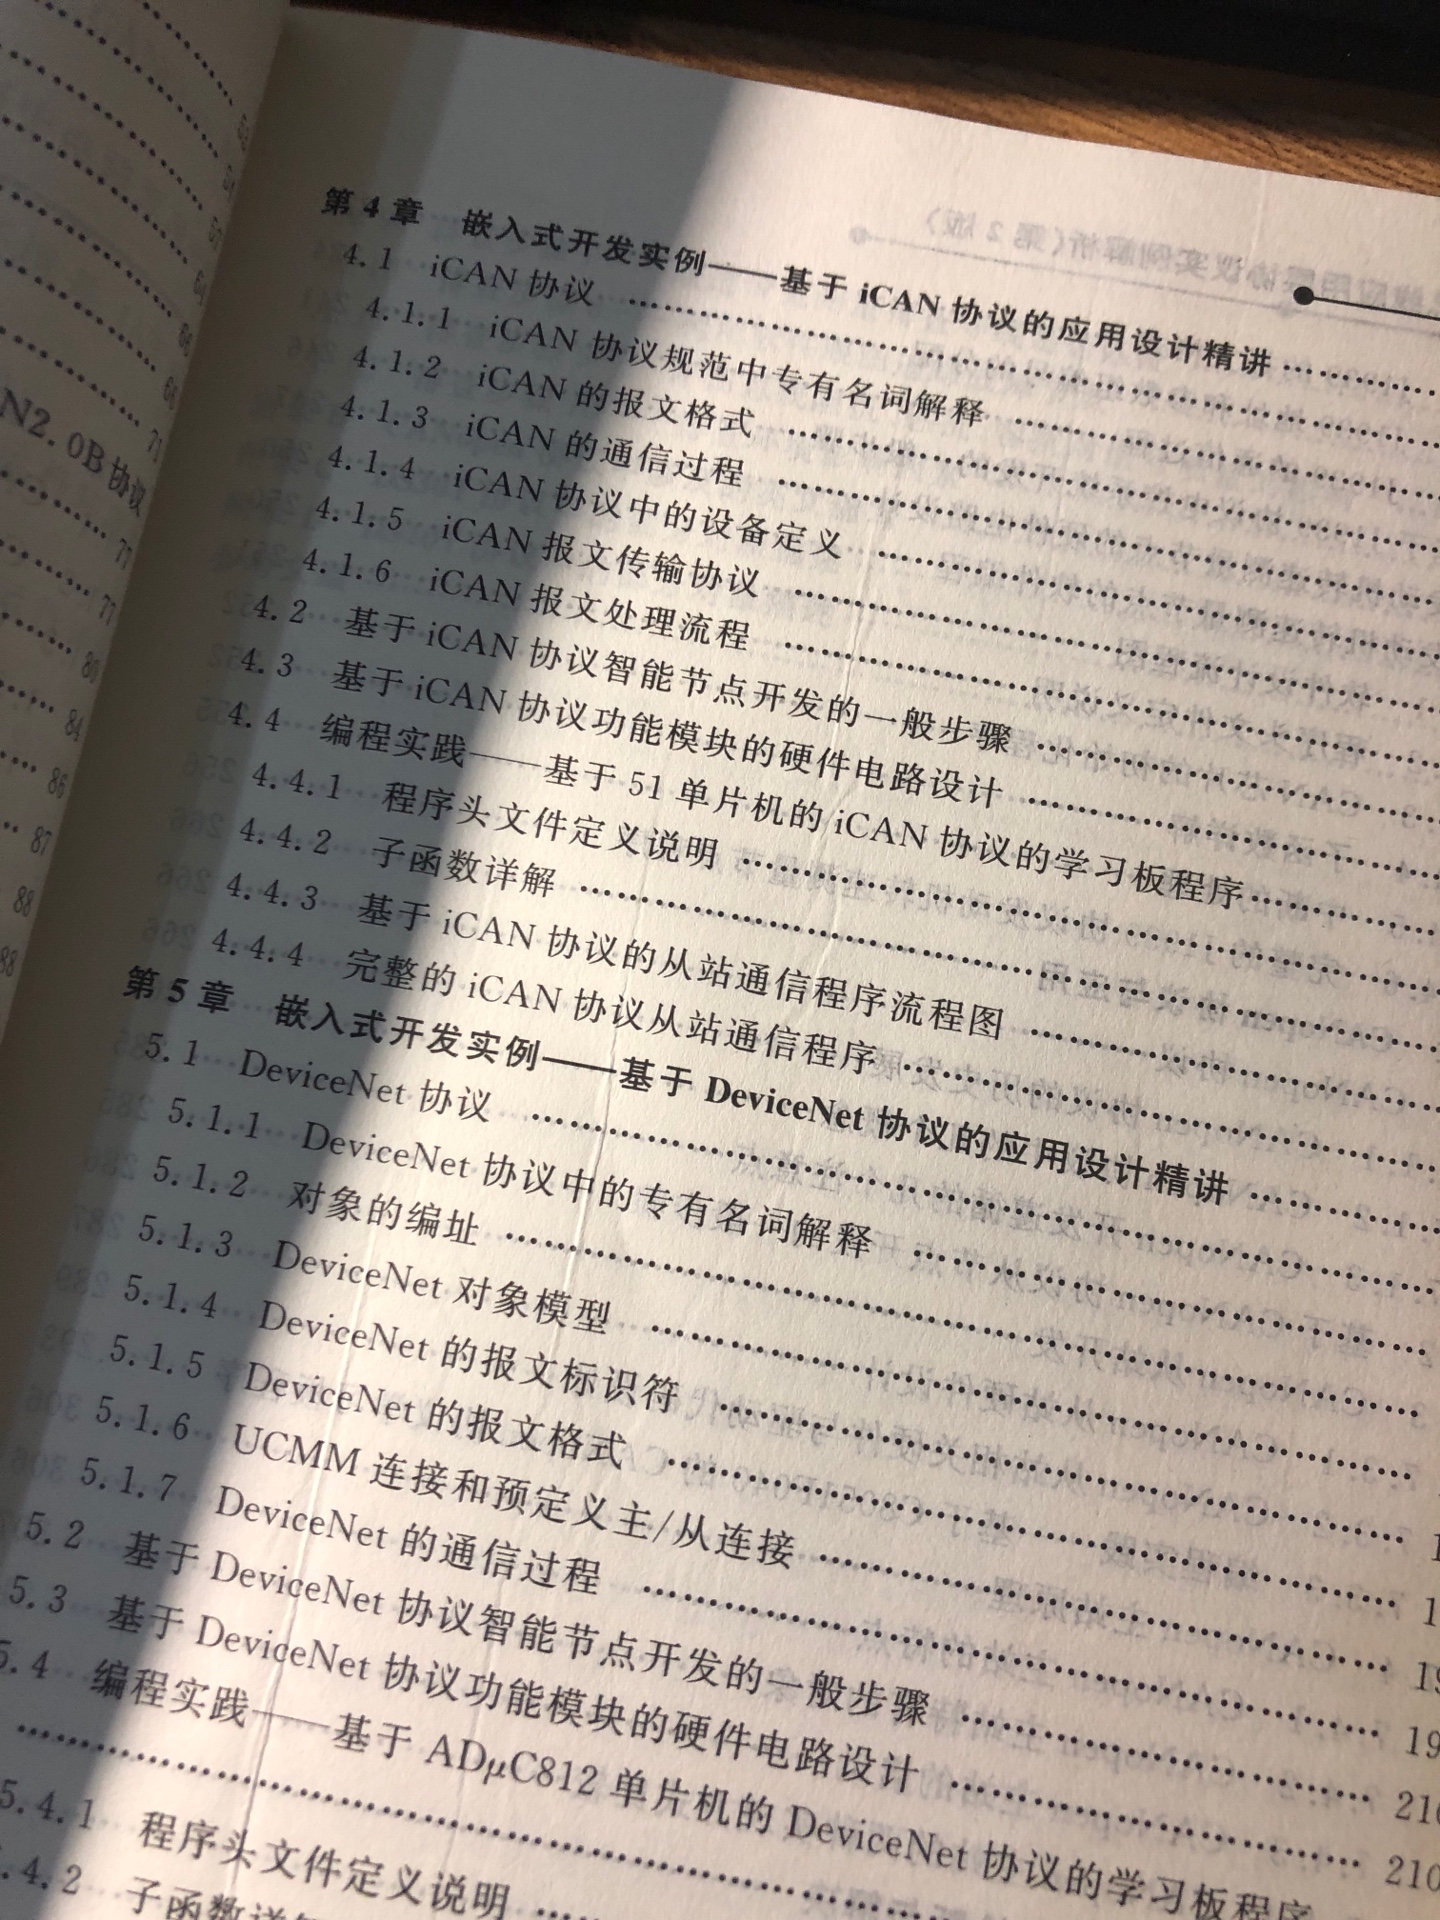 53
54
57
64
66
68
71
N2.0B 协议
77
77
80
84
86
87
88
88
第 4 章 嵌入式开发实例——基于 iCAN 协议的应用设计精讲
4.1 iCAN 协议
4.1.1 iCAN 协议规范中专有名词解释
4.1.2 iCAN 的报文格式
4.1.3 iCAN 的通信过程
4.1.4 iCAN 协议中的设备定义
4.1.5 iCAN 报文传输协议
4.1.6 iCAN 报文处理流程
4.2 基于 iCAN 协议智能节点开发的一般步骤
4.3 基于 iCAN 协议功能模块的硬件电路设计
4.4 编程实践——基于 51 单片机的 iCAN 协议的学习板程序
4.4.1 程序头文件定义说明
4.4.2 子函数详解
4.4.3 基于 iCAN 协议的从站通信程序流程图
4.4.4 完整的 iCAN 协议从站通信程序
第 5 章 嵌入式开发实例——基于 DeviceNet 协议的应用设计精讲
5.1 DeviceNet 协议
5.1.1 DeviceNet 协议中的专有名词解释
5.1.2 对象的编址
5.1.3 DeviceNet 对象模型
5.1.4 DeviceNet 的报文标识符
5.1.5 DeviceNet 的报文格式
5.1.6 UCMM 连接和预定义主/从连接
5.1.7 DeviceNet 的通信过程
5.2 基于 DeviceNet 协议智能节点开发的一般步骤
5.3 基于 DeviceNet 协议功能模块的硬件电路设计 210
5.4 编程实践——基于 ADμC812 单片机的 DeviceNet 协议的学习板程序
5.4.1 程序头文件定义说明
.4.2 子函数详解